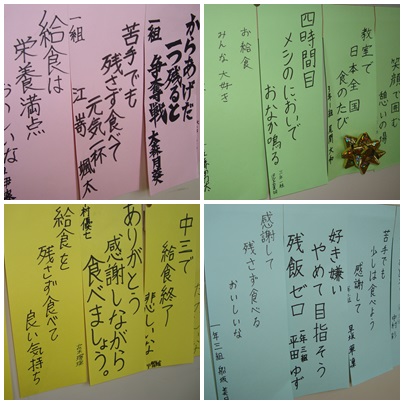 からあげだ
一つ残ると
争奪戦
一組
苦手でも
残さず食べて
元気一杯
一組
江嵜 颯太
給食は
栄養満点
おいしいな
笑顔で囲む
想いの場
教室で
日本全国
食のたび
四時間目
メシのにおいで
おなか鳴る
お給食
みんな大好き
中三で
給食終了
悲しいな
ありがとう
感謝しながら
食べましょう。
給食を
残さず食べて
良い気持ち
苦手でも
少しは食べよう
感謝して
好き嫌い
やめて目指そう
残飯ゼロ
一年三組
平田 ゆず
感謝して
残さず食べる
おいしいな
一年三組